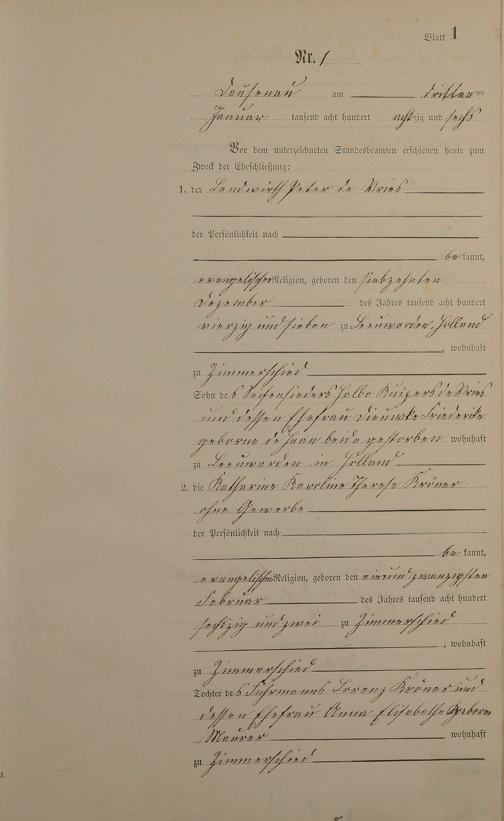 Blatt 1
Nr. 1
Dausenau am dritten ten
Januar tausend acht hundert achtzig und sechs
Vor dem unterzeichneten Standesbeamten erschienen heute zum
Zweck der Eheschließung:
1. der Landwirth Peter de Vries
der Persönlichkeit nach
be kannt,
evangelischer Religion, geboren den siebzehnten
Dezember des Jahres tausend acht hundert
vierzig und sieben zu Leeuwarden, Holland
, wohnhaft
zu Zimmerschied
Sohn des Seifensieders Halbo Kuipers de Vries
und dessen Ehefrau Dieuwke Friederike
geborne de Haan beide gestorben wohnhaft
zu Leeuwarden in Holland
2. die Katharine Karoline Therese Kröner
ohne Gewerbe
der Persönlichkeit nach
be kannt,
evangelischer Religion, geboren den ein und zwanzigsten
Februar des Jahres tausend acht hundert
sechzig und zwei zu Zimmerschied
, wohnhaft
zu Zimmerschied
Tochter des Fuhrmanns Lorenz Kröner und
dessen Ehefrau Anna Elisabethe geborne
Maurer wohnhaft
zu Zimmerschied